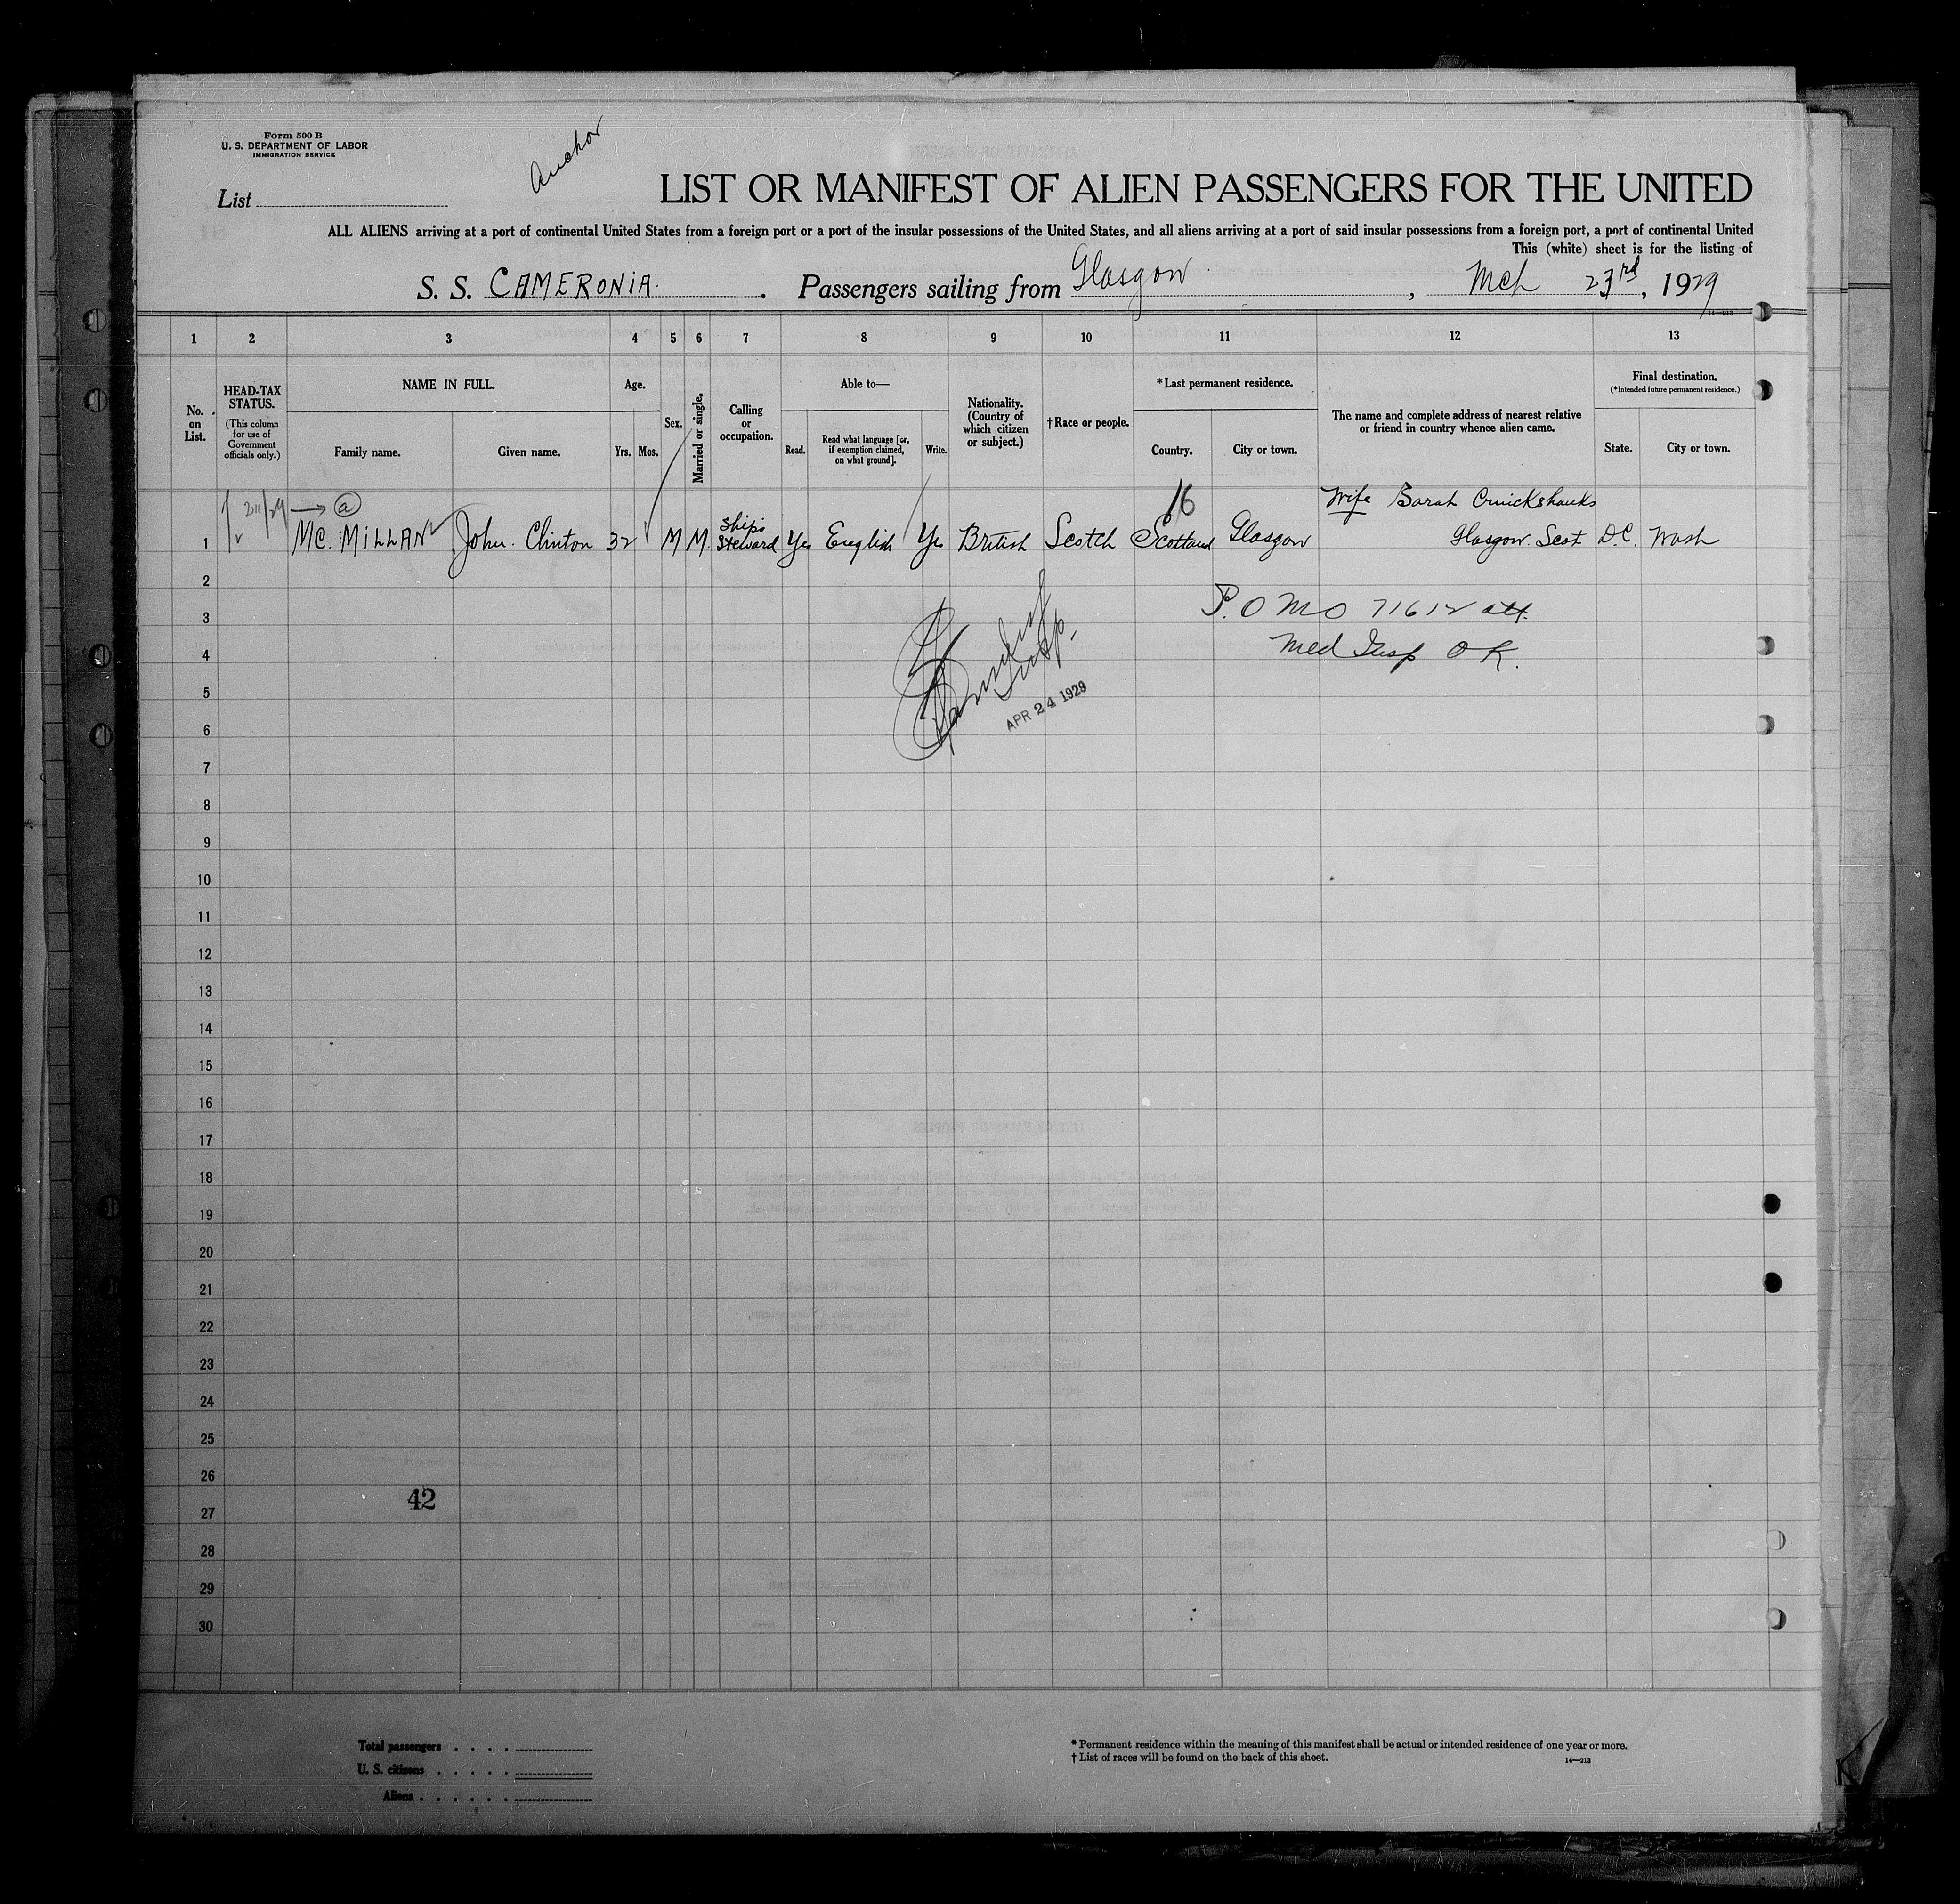 Form 500 B
U. S. DEPARTMENT OF LABOR
IMMIGRATION SERVICE
Anchor
List
LIST OR MANIFEST OF ALIEN PASSENGERS FOR THE UNITED
ALL ALIENS arriving at a port of continental United States from a foreign port or a port of the insular possessions of the United States, and all aliens arriving at a port of said insular possessions from a foreign port, a port of continental United
This (white) sheet is for the listing of
S. S. CAMERONIA. Passengers sailing from Glasgow, Mch 23rd, 1929
14—213
1 2 3 4 5 6 7 8 9 10 11 12 13
No. on List.
HEAD-TAX STATUS.
(This column for use of Government officials only.)
NAME IN FULL.
Family name. Given name.
Age.
Yrs. Mos.
Sex.
Married or single.
Calling or occupation.
Able to—
Read. Read what language [or, if exemption claimed, on what ground]. Write.
Nationality. (Country of which citizen or subject.)
†Race or people.
*Last permanent residence.
Country. City or town.
The name and complete address of nearest relative or friend in country whence alien came.
Final destination.
(*Intended future permanent residence.)
State. City or town.
a 16 Wife Sarah Cruickshanks
1 Mc. MILLAN John. Clinton 32 M M. Ships Steward Yes English Yes British Scotch Scotland Glasgow Glasgow. Scot D.C. Wash
2
3 P. O M O 71612 att.
4 Med Insp O K.
5
APR 24 1929
6
7
8
9
10
11
12
13
14
15
16
17
18
19
20
21
22
23
24
25
26
42
27
28
29
30
Total passengers
U. S. citizens
Aliens
* Permanent residence within the meaning of this manifest shall be actual or intended residence of one year or more.
† List of races will be found on the back of this sheet.
14—213